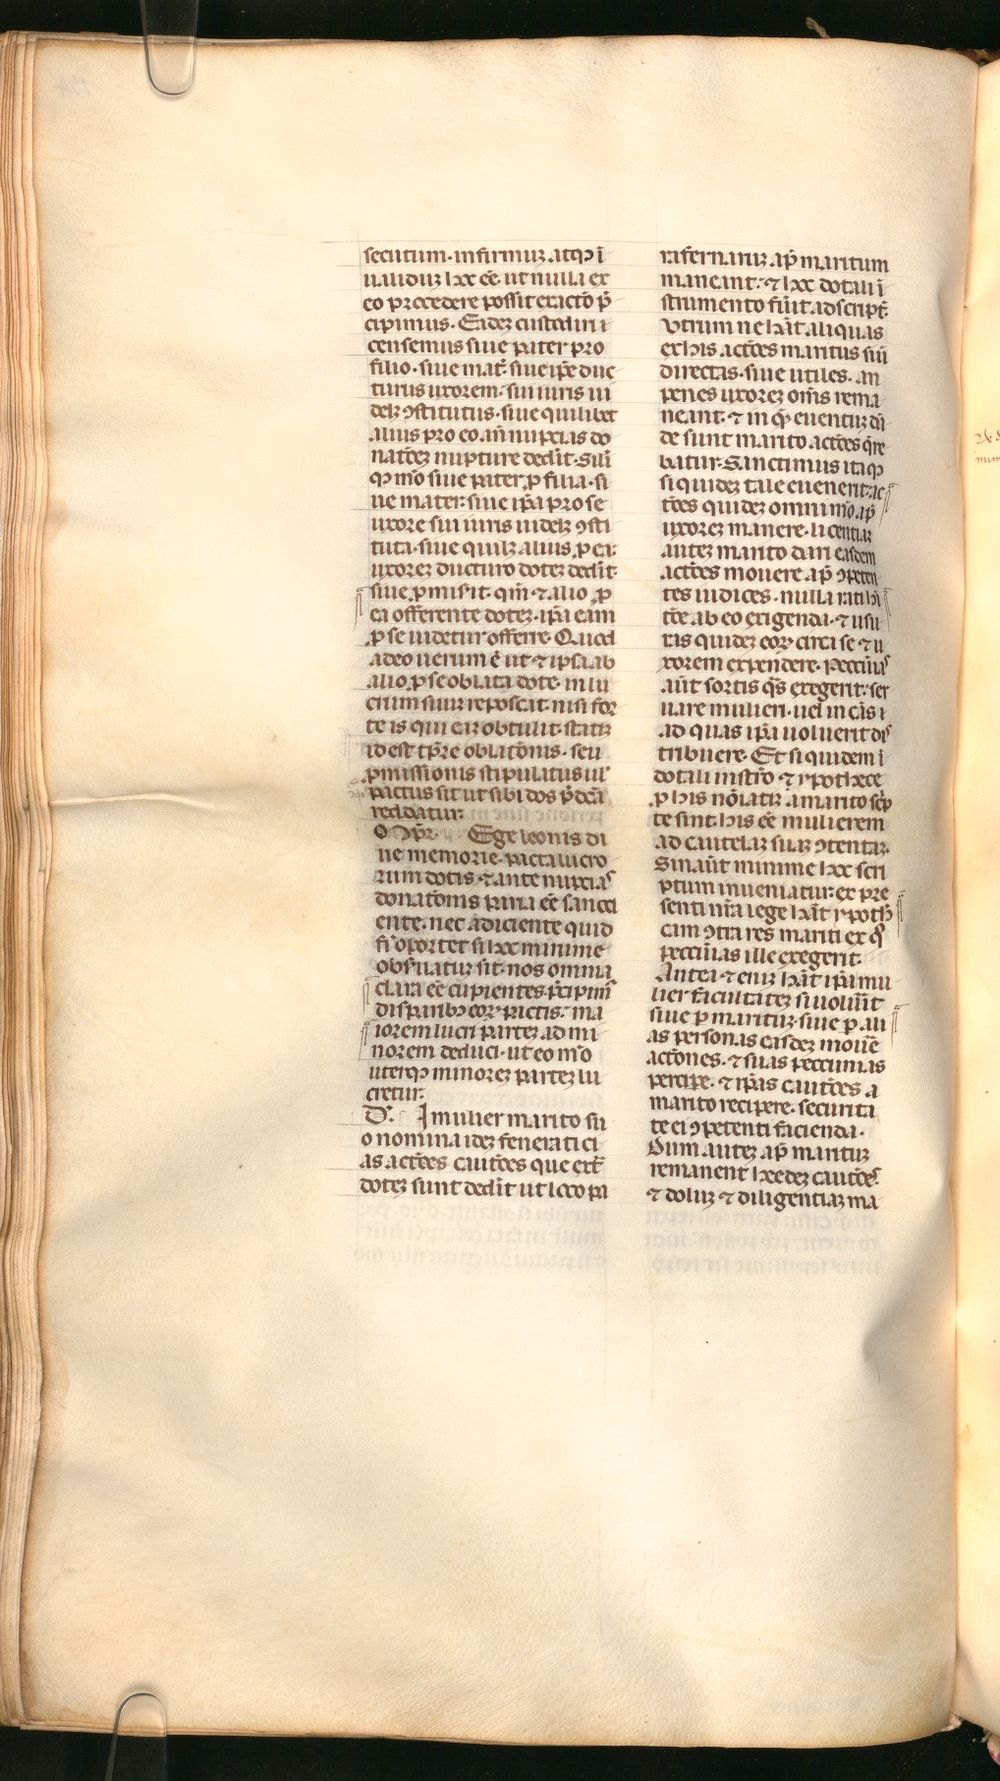 secutum. infirmuz atqꝫ ī
ualiduz hoc eē. ut nulla ex
eo procedere possit exactō p̄
cipimus. Eadez custodiri
censemus siue pater pro
filio. siue mat̄ siue ip̄e duc
turus uxorem. sui iuris ui
delꝫ ꝯstitutus. siue quilibet
alius pro eo. an̄ nupcias do
natōez nupture dedit. Sili
qꝫ mō siue pater ꝓ filia. si
ue mater. siue ip̄a pro se
uxore sui iuris uidelꝫ ꝯsti
tuta. siue quilꝫ alius ꝓ ea
uxorez ducturo dotez dedit.
siue ꝓmisit. qm̄ ⁊ alio ꝓ
ea offerente dotez. ip̄a eam
ꝑ se uidetur offerre. Quod
adeo uerum ē ut ⁊ ipsa ab
alio ꝓ se oblata dote. in lu
crum suuz reposcat. nisi for
te is qui eaz obtulit. statiz
id est tp̄re oblatōnis. seu
ꝓmissionis stipulatus ul̄
pactus sit ut sibi dos p̄dc̄a
reddatur.
Ege leonis di
ue memorie. pacta lucro
rum dotis. ⁊ ante nupcias
donatōnis paria eē sanci
ente. nec adiciente quid
fi' oportet si hoc minime
obs̄uatuz sit. nos omnia
clara eē cupientes. p̄cipim'
disparibꝫ eoꝝ pactis. ma
iorem lucri partez ad mi
norem deduci. ut eo mō
uterqꝫ minorez partez lu
cretur.
I mulier marito su
o nomina idez fenerati ci
as actōes cautōes que ext̄
dotez sunt dedit ut loco pa
rafernaruz ap̄ maritum
maneant. ⁊ hoc dotali ī
strumento fūit adscript̄.
Vtrum ne hāt aliquas
ex his actōes maritus siū
directas. siue utiles. an
penes uxorez oīs rema
neant. ⁊ in q̄ euentuz dā
de sunt marito actōes q̄re
batur. Sanctimus itaqꝫ
si quidez tale euenerit. ac
tōes quidez omnimō. ap̄
uxorez manere. licentiaz
autez marito dari easdem
actōes mouere ap̄ ꝯpeten
tes iudices. nulla ratihi
tōe ab eo exigenda. ⁊ usu
ras quidez eoꝝ circa se ⁊ u
xorem expendere. Peccūias
aūt sortis q̄s exegerit. ser
uare mulieri. uel in cās i
ad quas ip̄a uoluerit dis
tribuere. Et si quidem ī
dotali instrō ⁊ ypothece
ꝓ his nōiatiz a marito sc̄p
te sint. his eē mulierem
ad cautelaz suaz ꝯtentaz.
Sin aūt minime hoc scri
ptum inueniatur: ex pre
senti nr̄a lege hāt ypoth
cam ꝯtra res mariti ex q̄
peccūias ille exegerit.
Antea ⁊ eniz hāt ip̄a mu
lier facultatez si uolūit
siue ꝑ marituz. siue ꝑ ali
as personas easdez mouē
actōnes. ⁊ suas peccunias
percipe. ⁊ ip̄as cautōes a
marito recipere. securita
te ei ꝯpetenti facienda.
Dum autez ap̄ marituz
remanent hoedez cautōes
⁊ doluz ⁊ diligentiaz ma